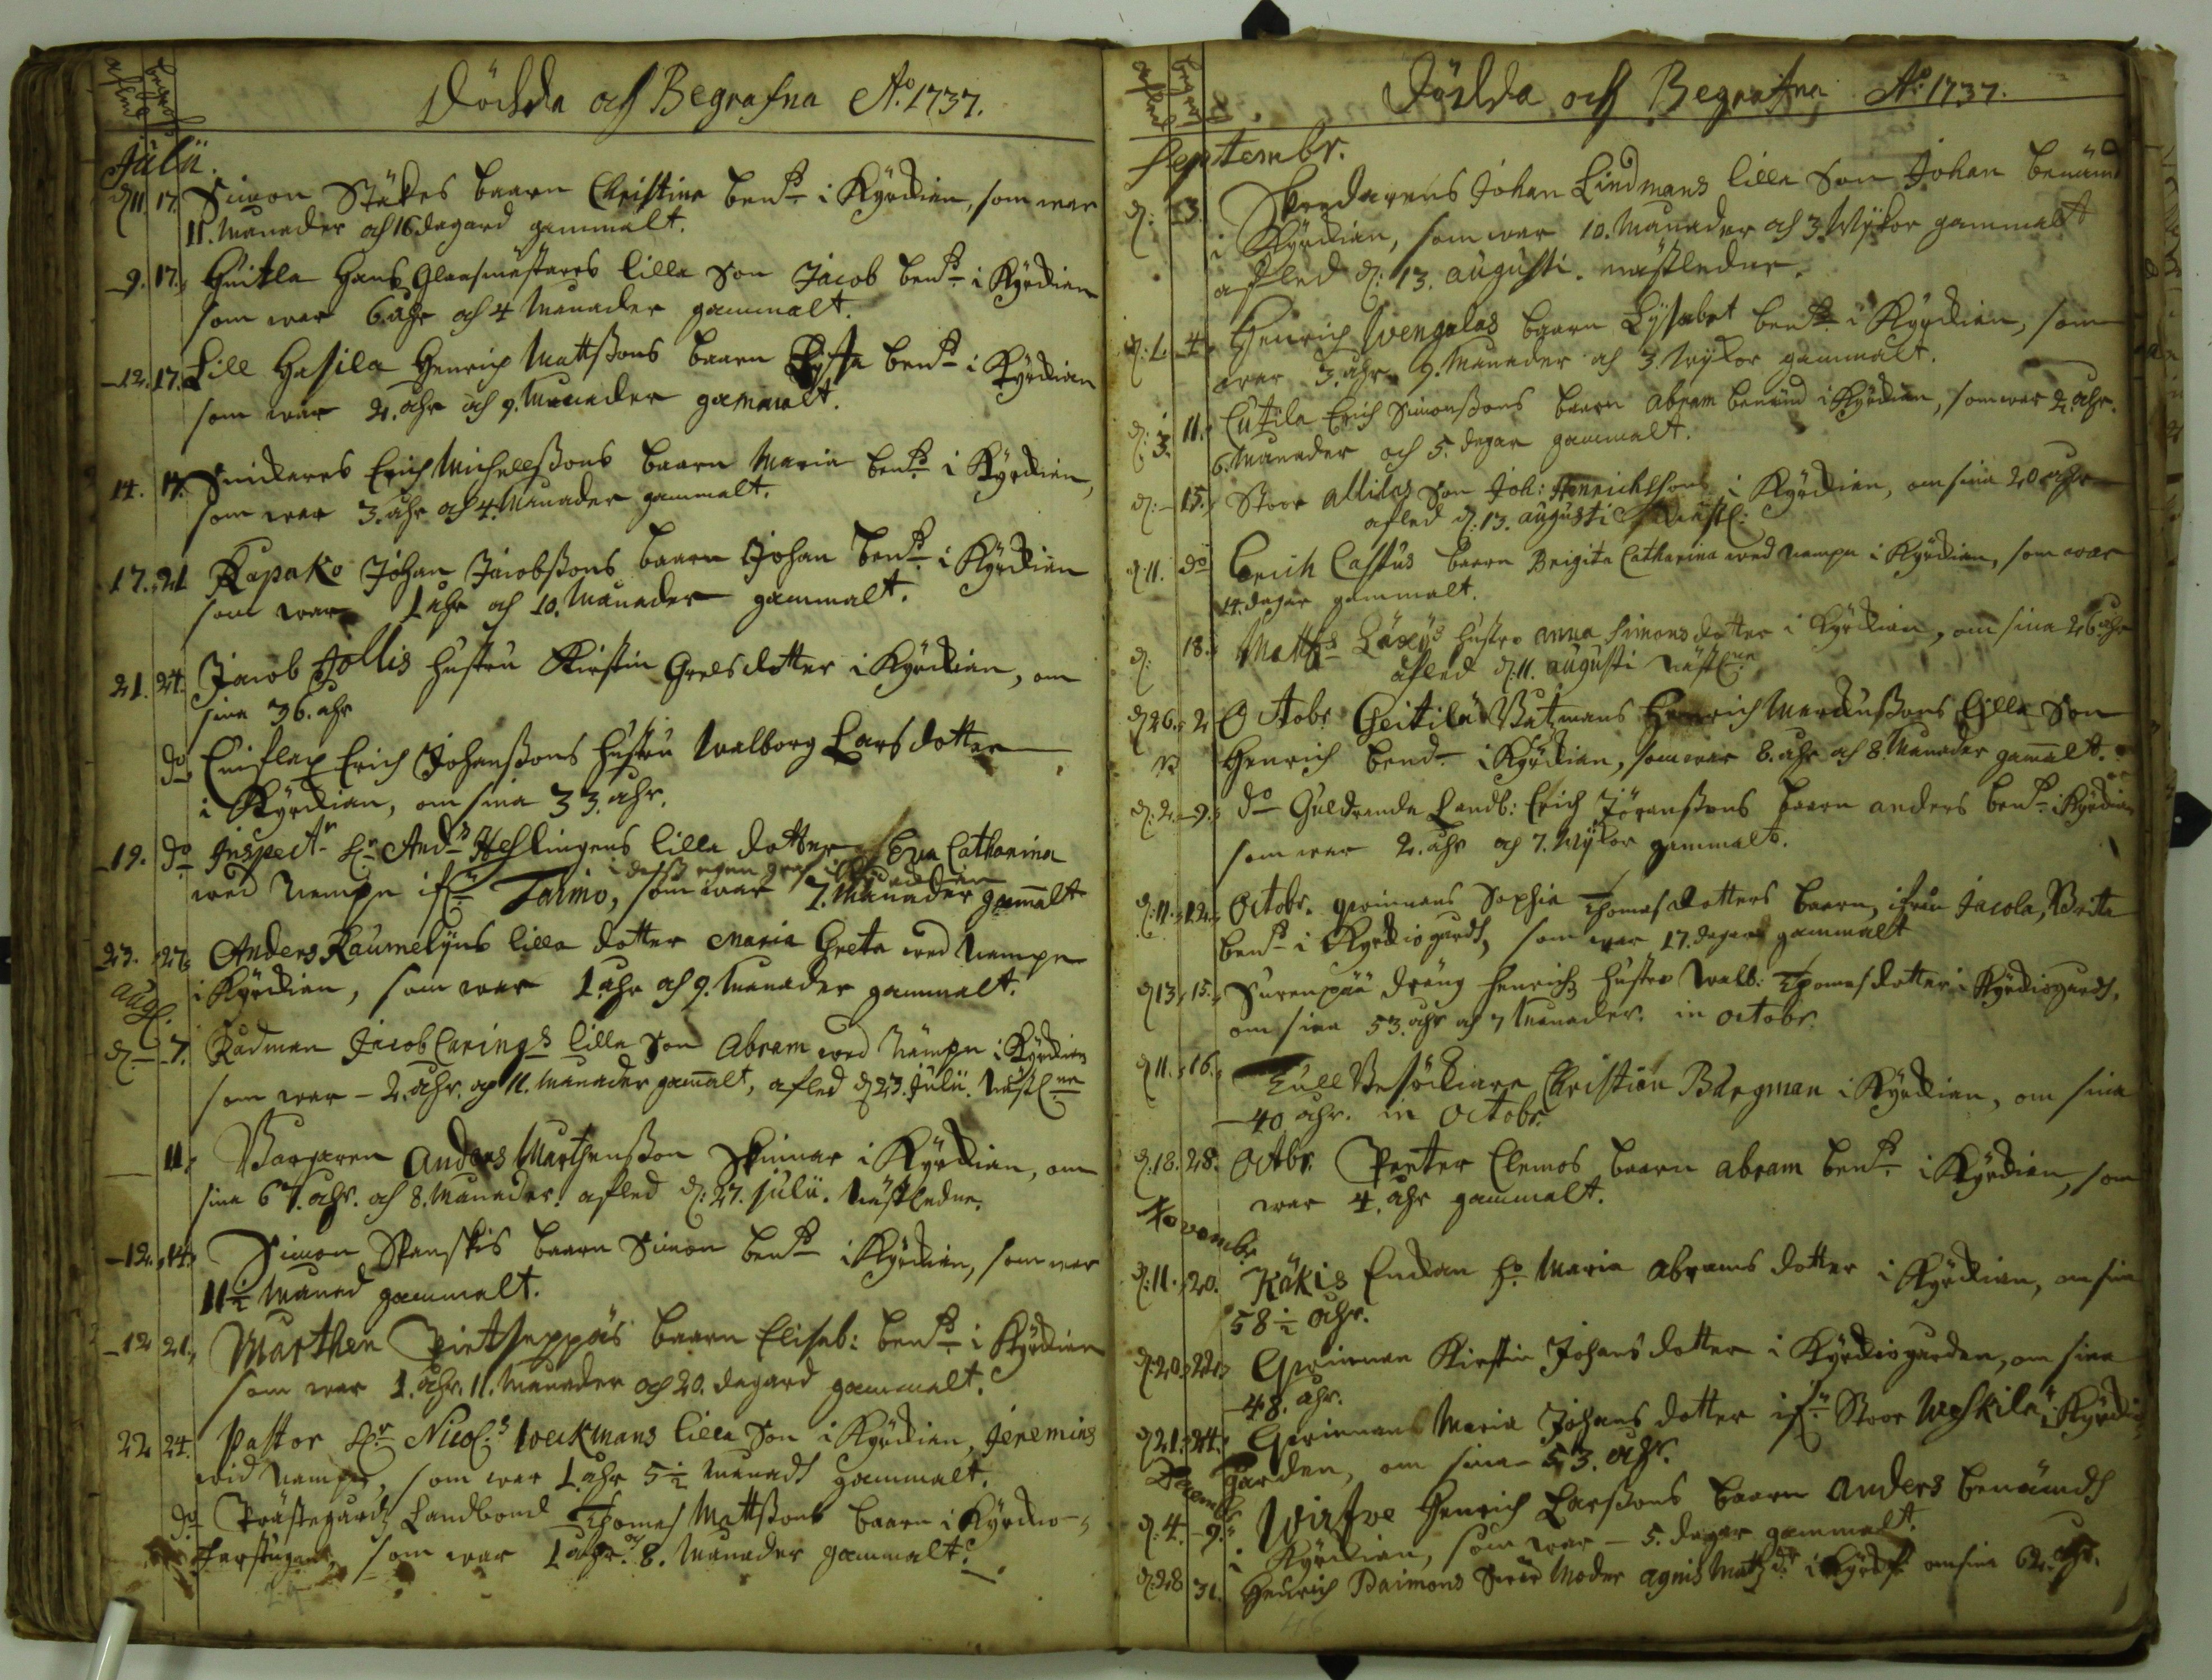 Dödda och Begrafna Ao. 1737.
afled begrof
Julii.
d. 11. 17. Simon Stäkes baarn Christina bend. i Kyrckian, som war
11. Månader och 16 dagard gammalt.
9. 17. Huitla Hans Glaasmästares lilla Son Jacob bend. i Kyrckian
som war 6. åhr och 4 Månader gammalt.
12. 17. Lill Hasila Henrich Mattssons baarn Lissa bend. i Kyrckian
som war 2. åhr och 9. Månader gammalt.
14. 17. Snickares Erich Michelssons baarn Maria bend. i Kyrckian,
som war 3. åhr och 4. Månader gammalt.
17. 21 Kapako Johan Jacobssons baarn Johan bend. i Kyrckian
som war 1 åhr och 10. Månader gammalt.
21. 24. Jacob Jollis hustru Kirstin Grelsdotter i Kyrckian, om
sina 36. åhr
do Erich Johanssons hustru Walborg Larsdotter
i Kyrckian, om sina 33. åhr.
19. do Inspectr. Hr. Ands. Heslingens lilla dotter Eva Catharina
i dess egen graf i Kyrckian
wed Nampn ifr. Taimo, som war 7. Månader gammalt
23. 27. Anders Raumelijns lilla dotter Maria Greta wed Nampn
i Kyrckian, som war 1. åhr och 9. Månader gammalt.
Aug.
d. 7. Rådman Jacob Carings lilla Son Abram wed Nampn i Kyrckian
som war 2. åhr. och 11. Månader gammalt, afled d. 23. Julii. Nästl.
11. Borgaren Anders Marthensson Skinnar i Kyrckian, om
sina 67. åhr. och 8. Månader. afled d: 27. Julii. Nästledne.
12. 14. Simon Skanskis baarn Simon bend. i Kyrckian, som war
11½ Månad gammalt.
12 21. Marthen Pietseppäs baarn Elisab: bend. i Kyrckian
som war 1. åhr. 11. Månader och 20. dagard gammalt.
22 24. Pastor Hr. Nicol. Weckmans lilla Son i Kyrckian, Jeremias
wid Nampn, som war 1. åhr 5½ Månadt gammalt.
do Prästegårdz Landbond Thomas Mattssons baarn i Kyrckio
som war 1 åhr. och 8. Månader gammalt.
Dödda och Begrafna Ao. 1737.
afled begr
Septembr.
d: 3. Skredarens Johan Lindmans lilla Son Johan benämd
i Kyrckian, som war 10. Månader och 3. Wikor gammalt
afled d: 13. Augusti. nästledne.
d: 1. 4. Henrich Svengalas baarn Lijsabet bend. i Kyrckian, som
war 3. åhr 9. Månader och 3. Wikor gammalt.
d: 3. 11. Cutila Erich Simonssons baarn Abram benämd i Kyrckian, som war 2. åhr.
6. Månader och 5. dagar gammalt.
d: 15. Stoor Allilas Son Joh: Henrichsson i Kyrckian, om sina 20 åhr
afled d: 13. Augusti nästl:
d 11. do Erich Castus baarn Brigita Catharina wed Nampn i Kyrckian, som war
14. dagar gammalt.
d: 18. Matths hustro Anna Simonsdotter i Kyrckian, om sina 26 åhr
afled d: 11. Augusti Nästl.
d 26. 2 Octobr. Cheitilä Båtzmans Henrich Marcussons lilla Son
Henrich bend. i Kyrckian, som war 8. åhr och 8. Månader gamalt.
d: 2. 9. do Guldranda Landb: Erich Jöranssons baarn Anders bend. i Kyrckian
som war 2. åhr och 7. Wikor gammalt.
d: 11. 12. Octobr. qwinnans Sophia Thomasdotters baarn, ifrån Jacola, Brita
bend. i Kyrckiogårdt, som war 17. dagar gammalt
d 13. 15. Surenpää dräng Henrichz hustro Walb: Thomasdotter i Kyrckiogårdt,
om sina 53. åhr och 7 Månader. in Octobr.
d 11. 16. Tull Besöckiare Christian Bärgman i Kyrckian, om sina
40 åhr. in Octobr.
d. 18. 28. Octbr. Peter Clemos baarn Abram bend. i Kyrckian, som
war 4. åhr gammalt.
Novembr.
d: 11. 20. Käkis Enckan ho. Maria Abrams dotter i Kyrckian, om sina
58½ åhr.
d: 20. 22. Qwinnan Kirstin Johansdotter i Kyrckiogården, om sina
48. åhr.
d 21. 24. Qwinnans Maria Johansdotter ifr. Stoor Weskilä i Kyrckio
gården, om sina 53. åhr.
Decemb.
d: 4. 9. Wirfwe Henrich Larssons baarn Anders benämdt
i Kyrckian, som war 5. dagar gammalt.
d: 28 31. Henrich Daimons Swär Moder Agnis Matzdr. i Kyrck. om sina 62. åhr.
46